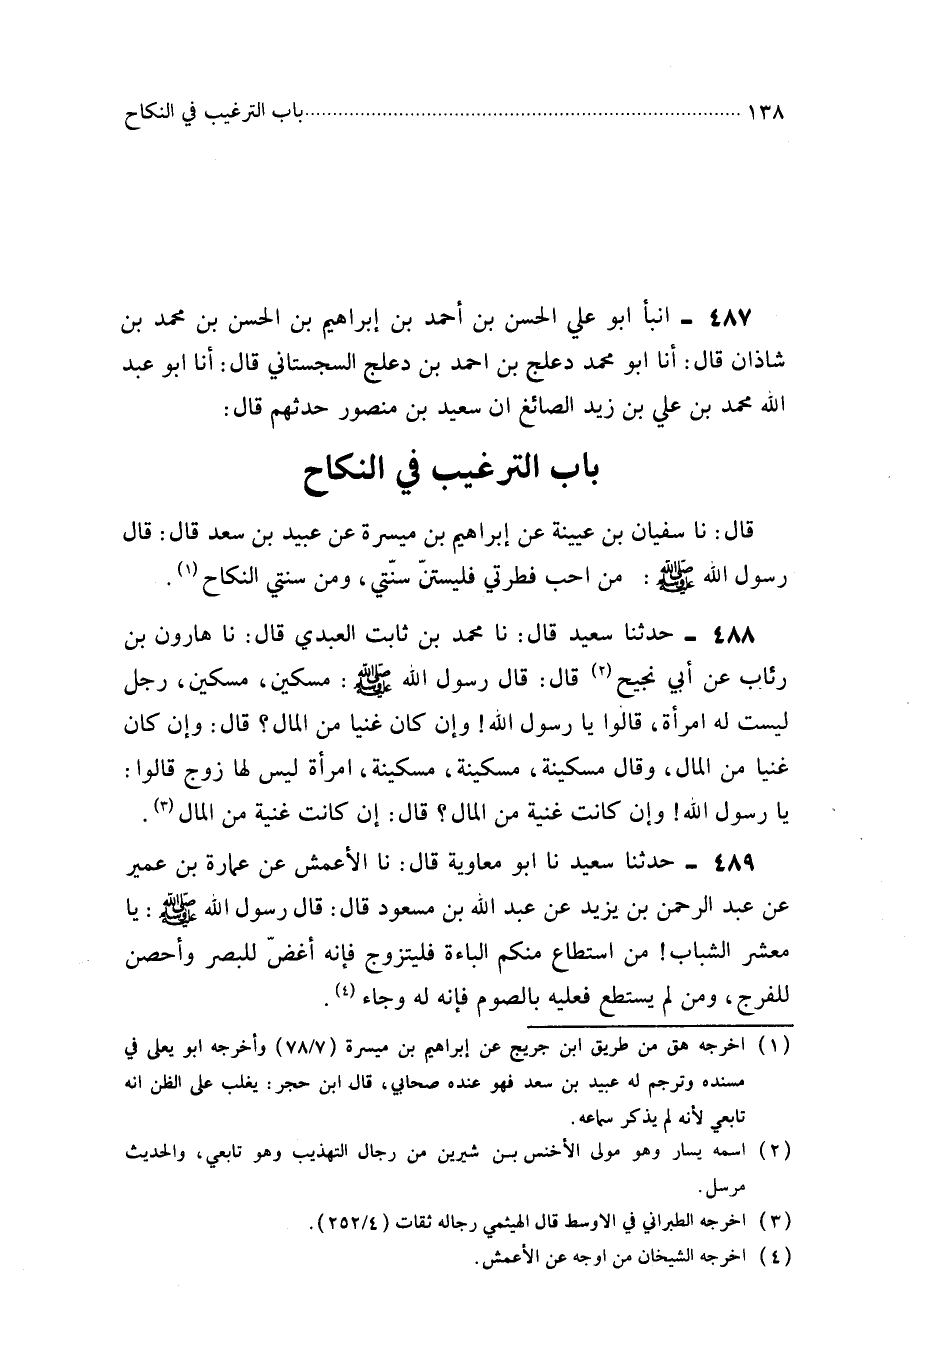 ١٣٨ .......... باب الترغيب في النكاح
٤٨٧ ـ انبأ ابو علي الحسن بن أحمد بن إبراهيم بن الحسن بن محمد بن
شاذان قال: أنا ابو محمد دعلج بن احمد بن دعلج السجستاني قال: أنا ابو عبد
الله محمد بن علي بن زيد الصائغ ان سعيد بن منصور حدثهم قال:
باب الترغيب في النكاح
قال: نا سفيان بن عيينة عن إبراهيم بن ميسرة عن عبيد بن سعد قال: قال
رسول الله ﷺ: من احب فطرتي فليستنّ سنّتي، ومن سنتي النكاح (١).
٤٨٨ ـ حدثنا سعيد قال: نا محمد بن ثابت العبدي قال: نا هارون بن
رئاب عن أبي نجيح (٢) قال: قال رسول الله ﷺ: مسكين، مسكين، رجل
ليست له امرأة، قالوا يا رسول الله! وإن كان غنيا من المال؟ قال: وإن كان
غنيا من المال، وقال مسكينة، مسكينة، مسكينة، امرأة ليس لها زوج قالوا:
يا رسول الله! وإن كانت غنية من المال؟ قال: إن كانت غنية من المال (٣).
٤٨٩ ـ حدثنا سعيد نا ابو معاوية قال: نا الأعمش عن عمارة بن عمير
عن عبد الرحمن بن يزيد عن عبد الله بن مسعود قال: قال رسول الله ﷺ: يا
معشر الشباب! من استطاع منكم الباءة فليتزوج فإنه أغضّ للبصر وأحصن
للفرج، ومن لم يستطع فعليه بالصوم فإنه له وجاء (٤).
(١) اخرجه هق من طريق ابن جريج عن إبراهيم بن ميسرة (٧٨/٧) وأخرجه ابو يعلى في
مسنده وترجم له عبيد بن سعد فهو عنده صحابي، قال ابن حجر: يغلب على الظن انه
تابعي لأنه لم يذكر سماعه.
(٢) اسمه يسار وهو مولى الأخنس بن شيرين من رجال التهذيب وهو تابعي، والحديث
مرسل.
(٣) اخرجه الطبراني في الاوسط قال الهيثمي رجاله ثقات (٢٥٢/٤).
(٤) اخرجه الشيخان من اوجه عن الأعمش.